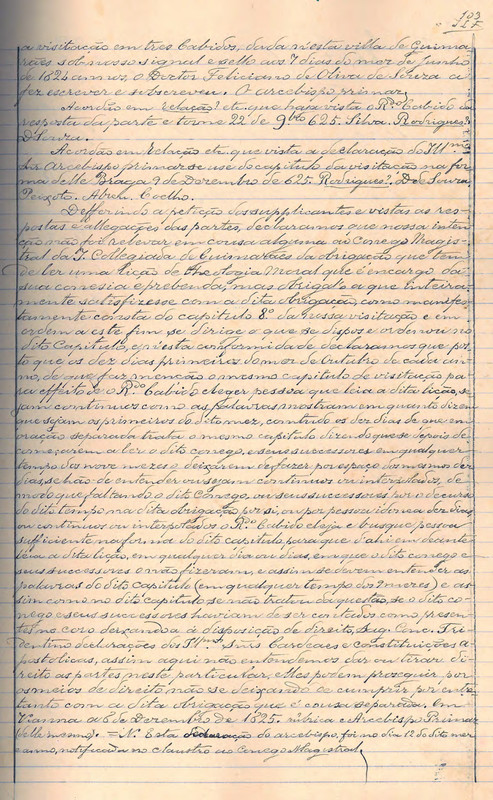 a visitação em tres Cabidos, dada n'esta villa de Guima-
rães sob nosso signal e sello aos 7 dias do mez de Junho
de 1624 annos, o Doctor Feliciano de Oliva de Souza a
fez escrever e subscreveu. O arcebispo primaz,
Acordão em relação? etc. que haja vista o R.do Cabido da
resposta da parte e torne 22 de 9bro 625. Silva. Rodrigues?
D'Souza.
Acordão em Relação etc. que vista a declaração do Ill.mo
Snr. Arcebispo primaz se use do capitulo da visitação na for-
ma delle Braga 9 de Dezembro de 625. Rodrigues?. De Souza
Peixoto. Abreu. Coelho.
Defferindo a petição dos supplicantes e vistas as res-
postas e allegações das partes, declaramos que nossa inten-
ção não foi relevar em cousa alguma ao Conego Magis-
tral da I. Collegiada de Guimarães da obrigação que tem
de ler uma lição de theologia Moral que é encargo da
sua conesia e prebenda, mas obrigal-o a que inteira-
mente satisfizesse com a dita obrigação, como manifes-
tamente consta do capitulo 8.º da nossa visitação e em
ordem a este fim se dirige o que se dispos e ordenou no
dito Capitulo, e n'esta conformidade declaramos que pos-
to que os dez dias primeiros do mez de Outubro de cada an-
no, de que faz menção o mesmo capitulo de visitação pa-
ra effeito de o R.do Cabido eleger pessoa que leia a dita lição, se-
jam continuos como as palavras mostram em quanto dizem
que sejam os primeiros do dito mez, comtudo os dez dias de que em
oração separada trata o mesmo capitulo dizendo que se depois de
começarem a ler o dito conego, e seus successores em qualquer
tempo dos nove mezes o deixarem de fazer por espaço dos mesmos dez
dias, se hão de entender ou sejam continuos ou interpolados, de
modo que faltando o dito Conego, ou seus successores por o decurso
do dito tempo na dita obrigação por si, ou por pessoa idonea dez dias
ou continuos ou interpolados o R.do Cabido eleja e busque pessoa
sufficiente na forma do dito capitulo, para que d'ahi em deante
leia a dita lição, em qualquer dia ou dias, em que o dito conego e
seus successores o não fizeram, e assim se devem entender as
palavras do dito capitulo (em qualquer tempo dos 9 mezes) e as-
sim como no dito capitulo se não tratou da questão, se o dito co-
nego e seus successores haviam de ser contados como presen-
tes no coro deixando-a á disposição de direito, Sag. Conc. Tri-
dentino declarações dos Ill.mos Snrs Cardeaes e constituições a-
postolicas, assim aqui não entendemos dar ou tirar di-
reito as partes neste particular, elles podem proseguir por
os meios de direito não se deixando de cumprir por entre
tanto com a dita obrigação que é cousa separada. Em
Vianna a 6 de Dezembro de 1625. rubrica e Arcebispo Primaz
= N. Esta declaração do arcebispo, foi no dia 12 do dito mez
e anno, notificada no claustro ao Conego Magistral